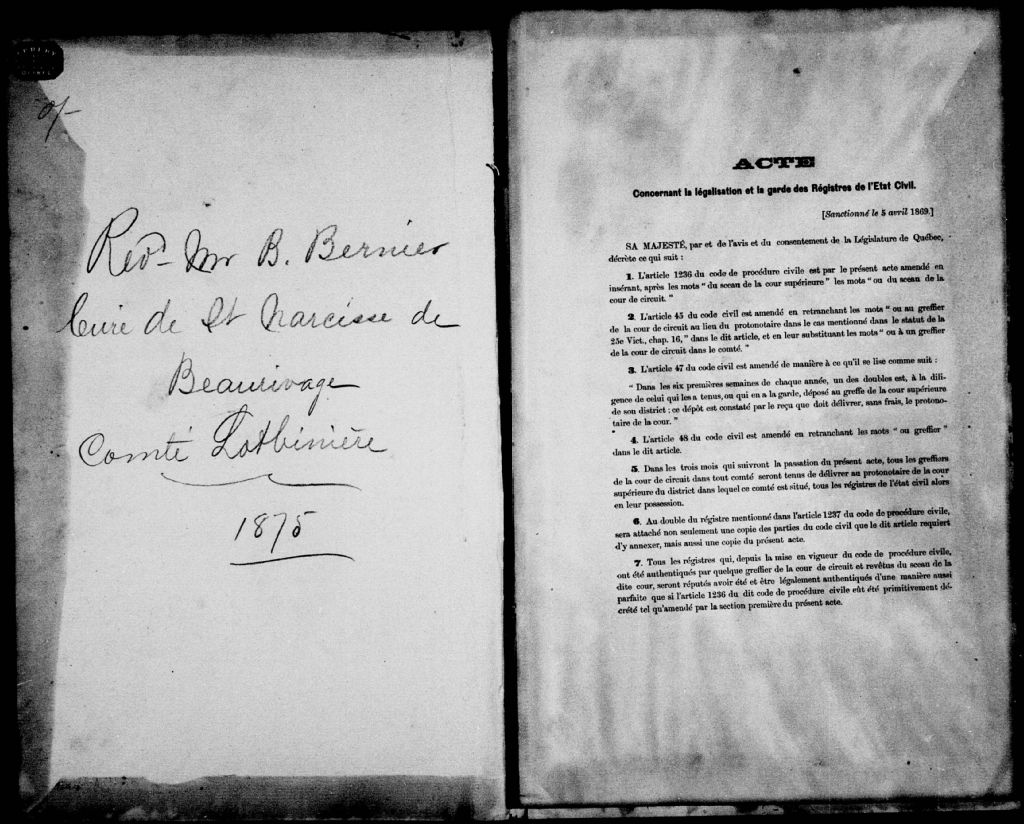 Revd Mr B. Bernier
Curé de St Narcisse de
Beaurivage
Comté Lotbinière
1875
ACTE
Concernant la légalisation et la garde des Régistres de l'Etat Civil.
[Sanctionné le 5 avril 1869.]
SA MAJESTÉ, par et de l'avis et du consentement de la Législature de Québec,
décrète ce qui suit :
1. L'article 1236 du code de procédure civile est par le présent acte amendé en
insérant, après les mots " du sceau de la cour supérieure " les mots " ou du sceau de la
cour de circuit. "
2. L'article 45 du code civil est amendé en retranchant les mots " ou au greffier
de la cour de circuit au lieu du protonotaire dans le cas mentionné dans le statut de la
25e Vict., chap. 16, " dans le dit article, et en leur substituant les mots " ou à un greffier
de la cour de circuit dans le comté. "
3. L'article 47 du code civil est amendé de manière à ce qu'il se lise comme suit :
" Dans les six premières semaines de chaque année, un des doubles est, à la dili-
gence de celui qui les a tenus, ou qui en a la garde, déposé au greffe de la cour supérieure
de son district ; ce dépôt est constaté par le reçu que doit délivrer, sans frais, le protono-
taire de la cour. "
4. L'article 48 du code civil est amendé en retranchant les mots " ou greffier "
dans le dit article.
5. Dans les trois mois qui suivront la passation du présent acte, tous les greffiers
de la cour de circuit dans tout comté seront tenus de délivrer au protonotaire de la cour
supérieure du district dans lequel ce comté est situé, tous les régistres de l'état civil alors
en leur possession.
6. Au double du régistre mentionné dans l'article 1237 du code de procédure civile,
sera attaché non seulement une copie des parties du code civil que le dit article requiert
d'y annexer, mais aussi une copie du présent acte.
7. Tous les régistres qui, depuis la mise en vigueur du code de procédure civile,
ont été authentiqués par quelque greffier de la cour de circuit et revêtus du sceau de la
dite cour, seront réputés avoir été et être légalement authentiqués d'une manière aussi
parfaite que si l'article 1236 du dit code de procédure civile eût été primitivement dé-
crété tel qu'amendé par la section première du présent acte.